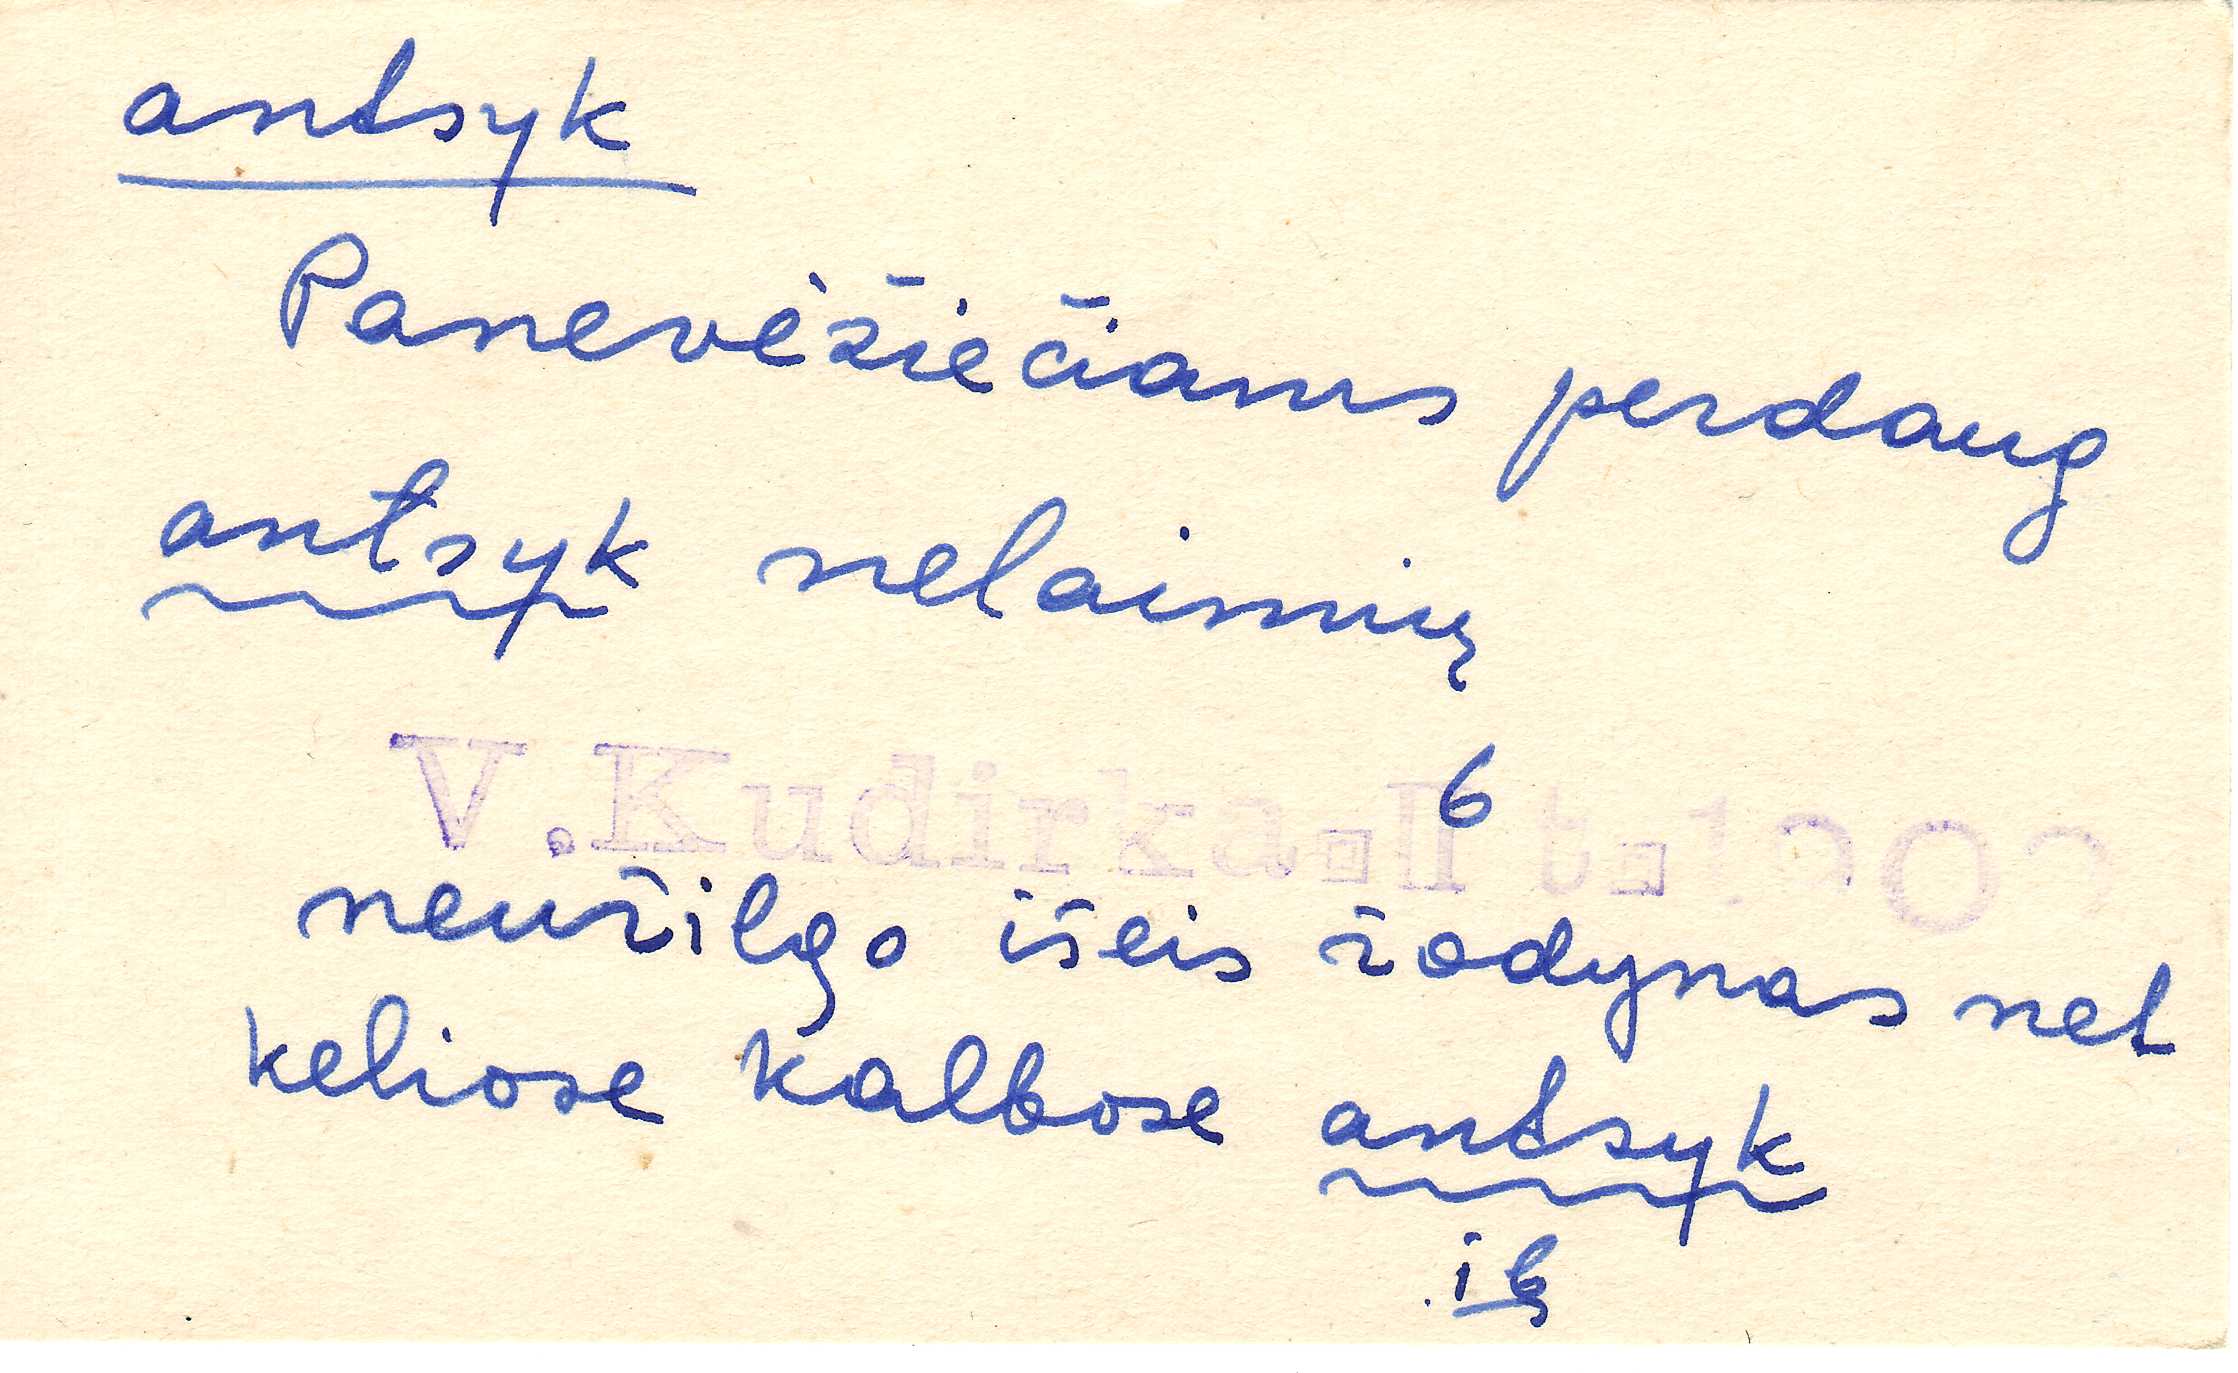 antsyk
Panevėžiečiams perdaug
antsyk nelaimių
V.Kudirka. II t. 6
neužilgo išeis žodynas net
keliose kalbose antsyk
ib